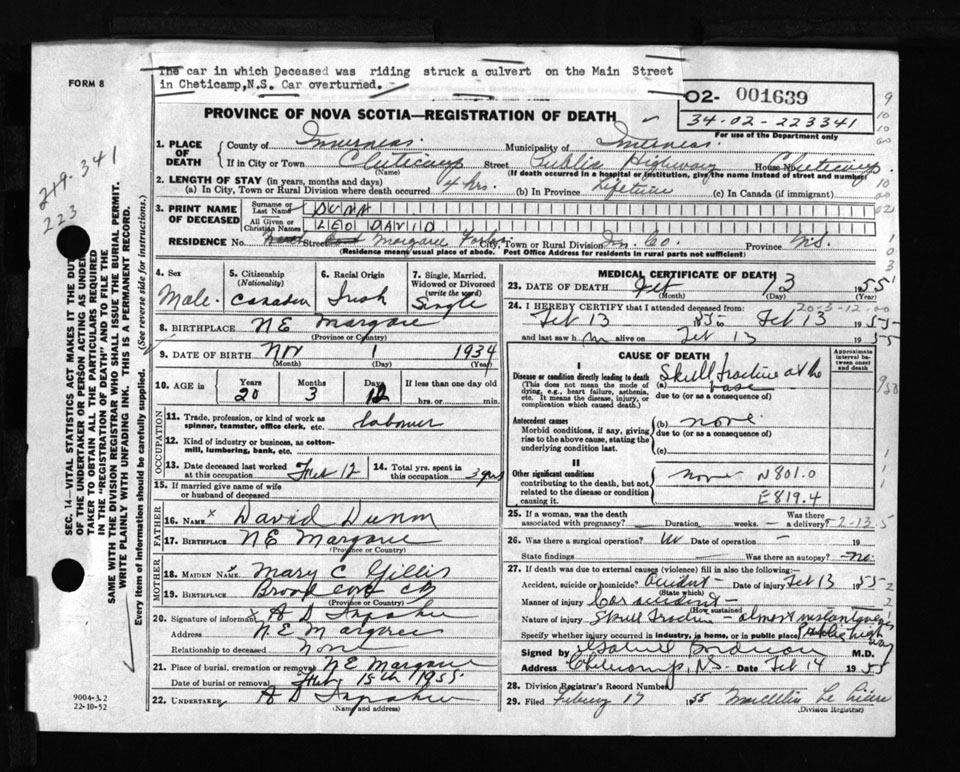 FORM 8
The car in which Deceased was riding struck a culvert on the Main Street
in Cheticamp,N.S. Car overturned.
02- 001639
34-02-223341
For use of the Department only
PROVINCE OF NOVA SCOTIA—REGISTRATION OF DEATH
219.341
223
1. PLACE OF DEATH
County of Inverness Municipality of Inverness
If in City or Town Cheticamp Street Public Highway House No. Cheticamp
(Name) (If death occurred in a hospital or institution, give the name instead of street and number)
2. LENGTH OF STAY (in years, months and days)
(a) In City, Town or Rural Division where death occurred 4 hrs. (b) In Province Lifetime (c) In Canada (if immigrant)
3. PRINT NAME OF DECEASED
Surname or Last Name DUNN
All Given or Christian Names LEO DAVID
RESIDENCE No. Street Margaree Forks City, Town or Rural Division Inv. Co. Province N.S.
(Residence means usual place of abode. Post Office Address for residents in rural parts not sufficient)
4. Sex
Male
5. Citizenship
(Nationality)
Canadian
6. Racial Origin
Irish
7. Single, Married, Widowed or Divorced
(write the word)
Single
8. BIRTHPLACE N E Margaree
(Province or Country)
9. DATE OF BIRTH Nov 1 1934
(Month) (Day) (Year)
10. AGE in Years Months Days If less than one day old
20 3 12 hrs. or min.
OCCUPATION
11. Trade, profession, or kind of work as spinner, teamster, office clerk, etc. labourer
12. Kind of industry or business, as cotton-mill, lumbering, bank, etc.
13. Date deceased last worked at this occupation Feb 12
14. Total yrs. spent in this occupation 3 yrs
15. If married give name of wife or husband of deceased
FATHER
16. NAME David Dunn
17. BIRTHPLACE N E Margaree
(Province or Country)
MOTHER
18. MAIDEN NAME Mary C Gillis
19. BIRTHPLACE Broad Cove
(Province or Country)
20. Signature of informant A D
Address N.E Margaree
Relationship to deceased None
21. Place of burial, cremation or removal N E Margaree
Date of burial or removal Feb 15th 1955
22. UNDERTAKER A D
(Name and address)
MEDICAL CERTIFICATE OF DEATH
23. DATE OF DEATH Feb 13 1955
(Month) (Day) (Year)
24. I HEREBY CERTIFY that I attended deceased from
Feb 13 1955 to Feb 13 1955
and last saw him alive on Feb 13 1955
CAUSE OF DEATH
Approximate interval between onset and death
I
Disease or condition directly leading to death
(This does not mean the mode of dying, e.g., heart failure, asthenia, etc. It means the disease, injury, or complication which caused death.)
(a) Skull fracture at the base
due to (or as a consequence of)
Antecedent causes
Morbid conditions, if any, giving rise to the above cause, stating the underlying condition last.
(b) none
due to (or as a consequence of)
(c)
II
Other significant conditions
contributing to the death, but not related to the disease or condition causing it.
none N801.0
E819.4
25. If a woman, was the death associated with pregnancy? Duration weeks. Was there a delivery?
26. Was there a surgical operation? No Date of operation
State findings Was there an autopsy? no.
27. If death was due to external causes (violence) fill in also the following:
Accident, suicide or homicide? Accident Date of injury Feb 13 1955
(State which)
Manner of injury Car accident
(How sustained)
Nature of injury Skull fracture - almost instantaneous
Specify whether injury occurred in industry, in home, or in public place Public high way
Signed by M.D.
Address Cheticamp, N.S. Date Feb 14 1955
28. Division Registrar's Record Number
29. Filed February 17 1955
(Division Registrar)
SEC. 14—VITAL STATISTICS ACT MAKES IT THE DUTY
OF THE UNDERTAKER OR PERSON ACTING AS UNDER-
TAKER TO OBTAIN ALL THE PARTICULARS REQUIRED
IN THE "REGISTRATION OF DEATH" AND TO FILE THE
SAME WITH THE DIVISION REGISTRAR WHO SHALL ISSUE THE BURIAL PERMIT.
WRITE PLAINLY WITH UNFADING INK. THIS IS A PERMANENT RECORD.
Every item of information should be carefully supplied. (See reverse side for instructions.)
9004-3.2
22-10-52